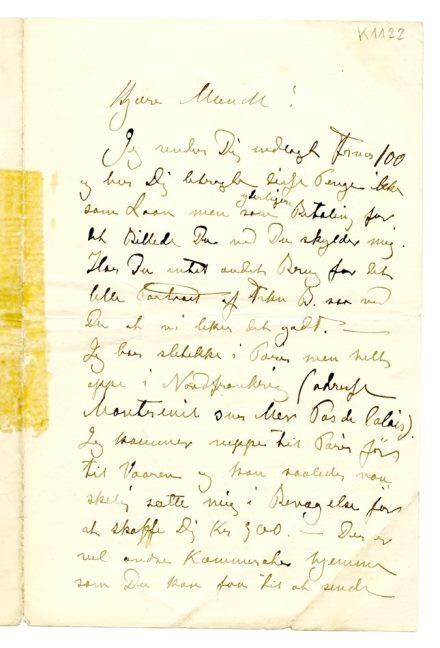 K1122
Kjære Munch!
Jeg sender Dig indlagt Francs 100
og ber Dig betragte disse Penge ikke
som Laan men som yderligere Betaling for
et Billede Du ved Du skylder mig.
Har Du intet andet Brug for det
lille Portrait af Frku D. saa ved
Du at vi liker det godt. —
Jeg bor slet ikke i Paris men helt
oppe i Nordfrankrig (adresse
Montreuil sur Mer Pas de Calais).
Jeg kommer neppe til Paris før
til Vaaren og kan saaledes van-
skelig sætte mig i Bevægelse for
at skaffe Dig Kr 300. — Der er
vel andre Kammerater hjemme
som Du kan faa til at sende